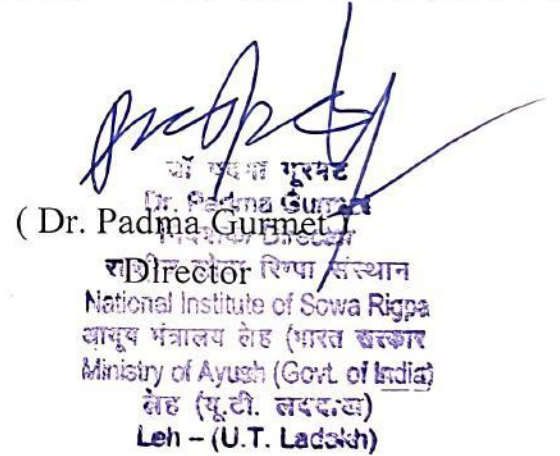 डॉ पदमा गुरमट
Dr. Padma Gurmet
( Dr. Padma Gurmet )
निदेशक/Director
Director
राष्ट्रीय सोवा रिग्पा संस्थान
National Institute of Sowa Rigpa
आयूष मंत्रालय लेह (भारत सरकार
Ministry of Ayush (Govt. of India)
लेह (यू.टी. लद्दाख)
Leh – (U.T. Ladakh)